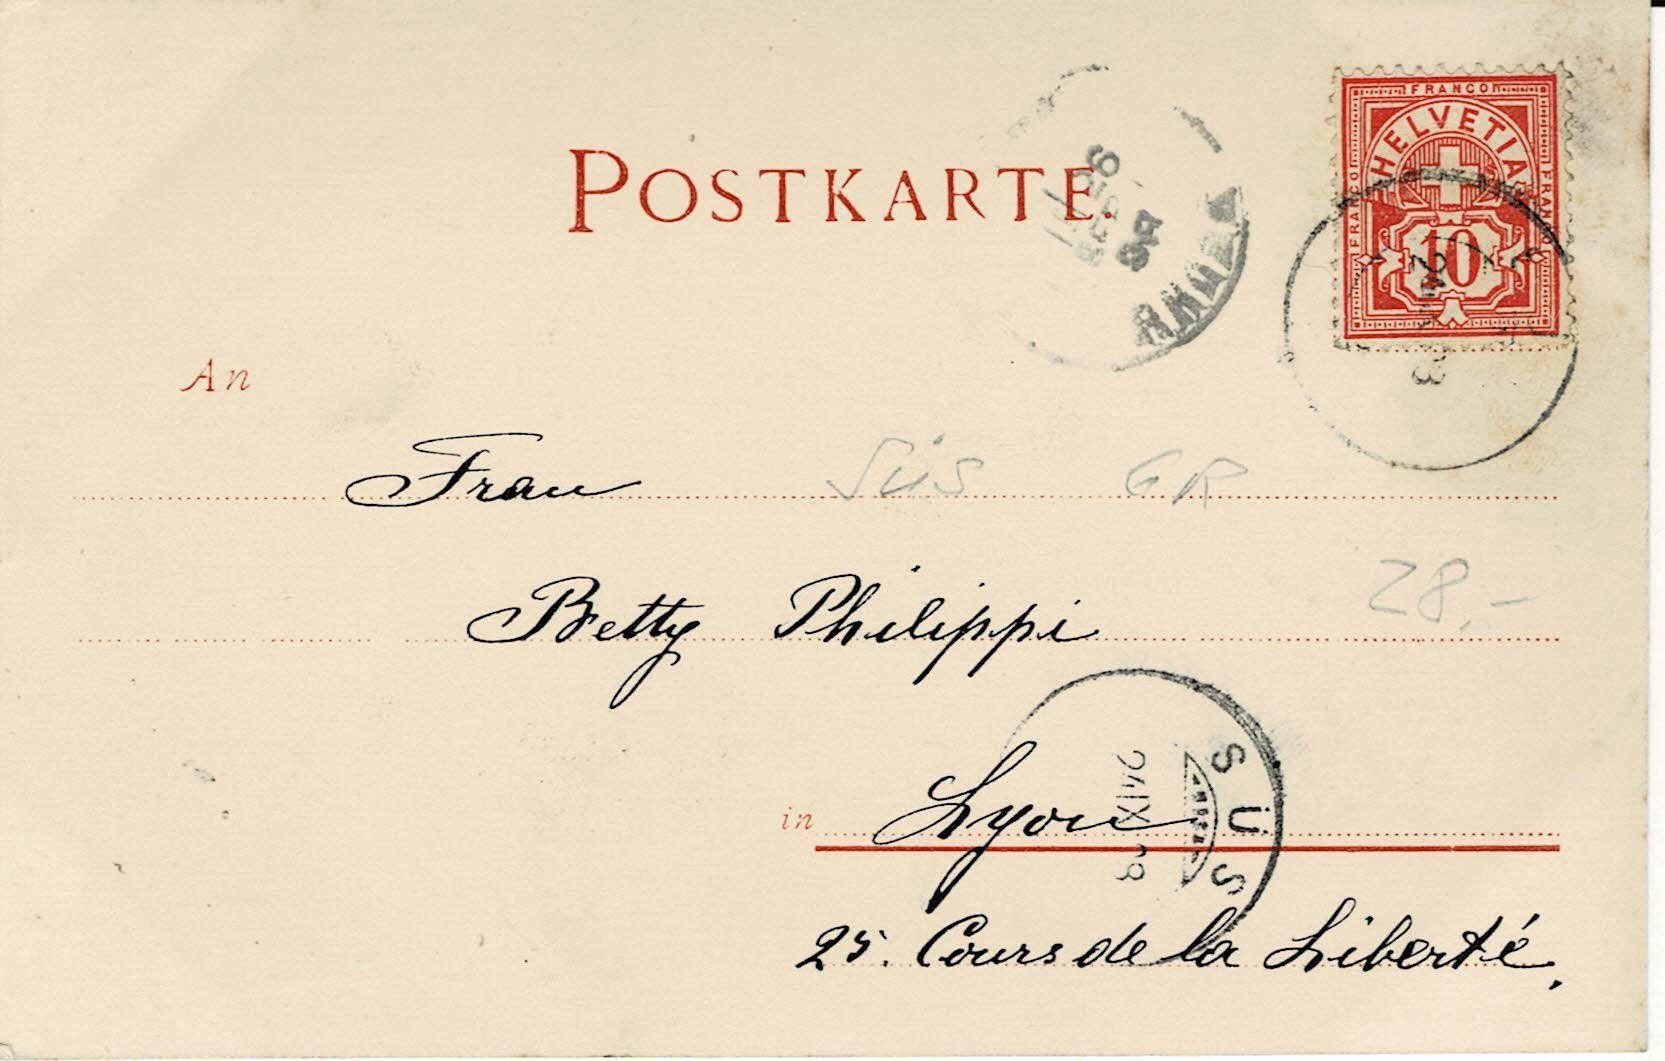 POSTKARTE.
FRANCO
HELVETIA
FRANCO
FRANCO
10
An
Frau
SÜS GR
Betty Philippi
28.-
in Lyon
SÜS
25. Cours de la Liberté.